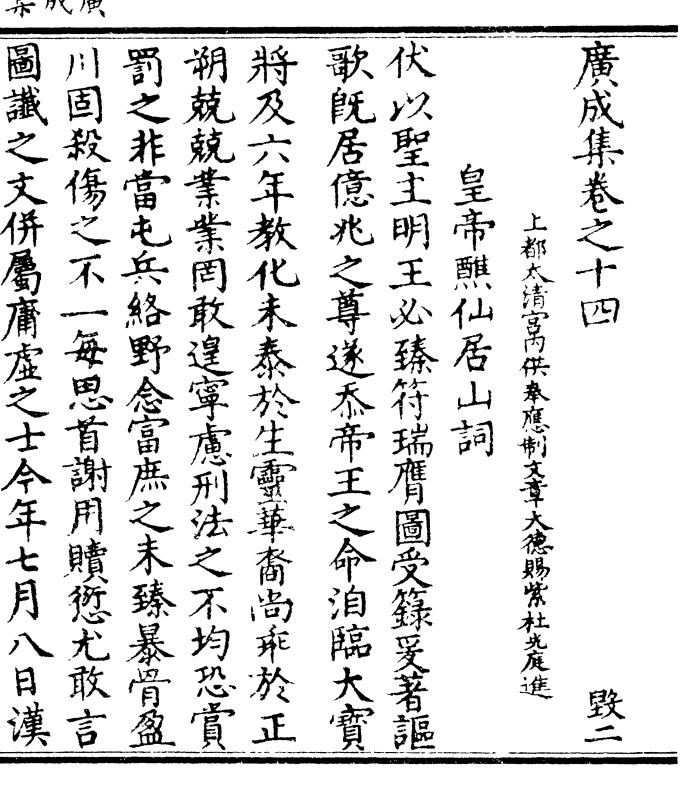 廣成集卷之十四
毀二
上都太清宮內供奉應制文章大德賜紫杜光庭進
皇帝醮仙居山詞
伏以聖主明王必臻符瑞膺圖受籙爰著謳
歌旣居億兆之尊遂忝帝王之命洎臨大寶
將及六年教化未泰於生靈華裔尚乖於正
朔兢兢業業罔敢遑寧慮刑法之不均恐賞
罰之非當屯兵絡野念富庶之未臻暴骨盈
川固殺傷之不一每思首謝用贖愆尤敢言
圖讖之文併屬庸虛之士今年七月八日漢